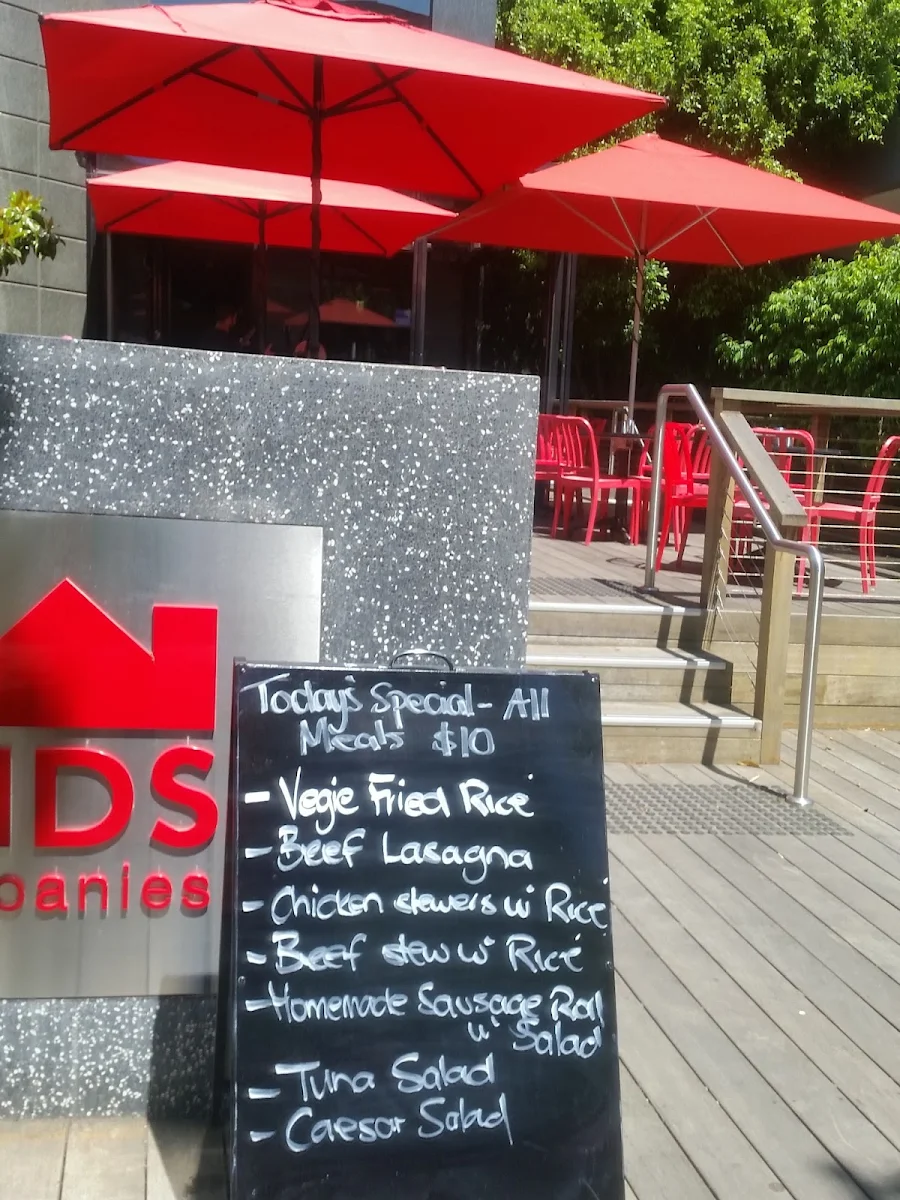 NDS
panies
Today's Special - All
Meals $10
- Vegie Fried Rice
- Beef Lasagna
- Chicken skewers w/ Rice
- Beef stew w/ Rice
- Homemade Sausage Roll
w/ Salad
- Tuna Salad
- Caesar Salad